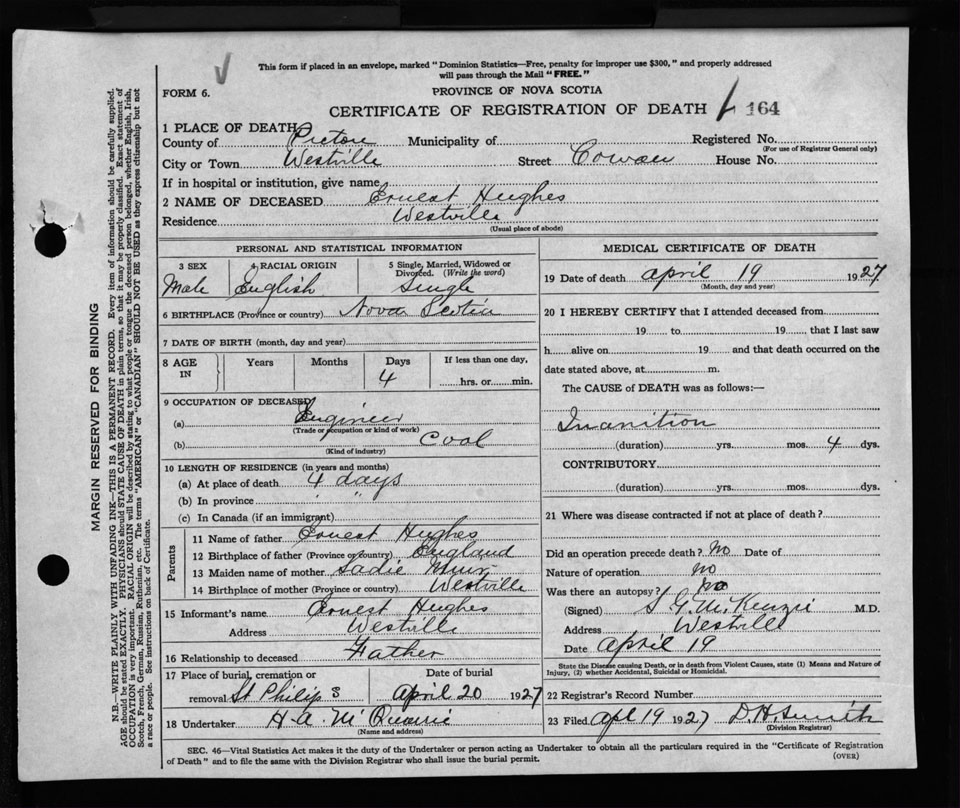 This form if placed in an envelope, marked "Dominion Statistics—Free, penalty for improper use $300," and properly addressed
will pass through the Mail "FREE."
FORM 6.
PROVINCE OF NOVA SCOTIA
CERTIFICATE OF REGISTRATION OF DEATH 164
1 PLACE OF DEATH
County of Pictou Municipality of Registered No.
(For use of Registrar General only)
City or Town Westville Street Cowan House No.
If in hospital or institution, give name
2 NAME OF DECEASED Ernest Hughes
Residence Westville
(Usual place of abode)
PERSONAL AND STATISTICAL INFORMATION
3 SEX 4 RACIAL ORIGIN 5 Single, Married, Widowed or
Divorced. (Write the word)
Male English Single
6 BIRTHPLACE (Province or country) Nova Scotia
7 DATE OF BIRTH (month, day and year)
8 AGE IN Years Months Days If less than one day,
4 hrs. or min.
9 OCCUPATION OF DECEASED
(a) Engineer
(Trade or occupation or kind of work)
(b) Coal
(Kind of industry)
10 LENGTH OF RESIDENCE (in years and months)
(a) At place of death 4 days
(b) In province " "
(c) In Canada (if an immigrant)
Parents
11 Name of father Ernest Hughes
12 Birthplace of father (Province or country) England
13 Maiden name of mother Sadie Muir
14 Birthplace of mother (Province or country) Westville
15 Informant's name Ernest Hughes
Address Westville
16 Relationship to deceased Father
17 Place of burial, cremation or Date of burial
removal St Philips April 20 1927
18 Undertaker H. A. McQuarrie
(Name and address)
MEDICAL CERTIFICATE OF DEATH
19 Date of death April 19 1927
(Month, day and year)
20 I HEREBY CERTIFY that I attended deceased from
19 to 19 , that I last saw
h alive on 19 and that death occurred on the
date stated above, at m.
The CAUSE of DEATH was as follows:—
Inanition
(duration) yrs. mos. 4 dys.
CONTRIBUTORY
(duration) yrs. mos. dys.
21 Where was disease contracted if not at place of death?
Did an operation precede death? No Date of
Nature of operation no
Was there an autopsy? no
(Signed) S G McKenzie M.D.
Address Westville
Date April 19
State the Disease causing Death, or in death from Violent Causes, state (1) Means and Nature of
Injury, (2) whether Accidental, Suicidal or Homicidal.
22 Registrar's Record Number
23 Filed Apl 19 1927 D. H. Smith
(Division Registrar)
SEC. 46—Vital Statistics Act makes it the duty of the Undertaker or person acting as Undertaker to obtain all the particulars required in the "Certificate of Registration
of Death" and to file the same with the Division Registrar who shall issue the burial permit.
(OVER)
MARGIN RESERVED FOR BINDING
N.B.—WRITE PLAINLY WITH UNFADING INK—THIS IS A PERMANENT RECORD. Every item of information should be carefully supplied.
AGE should be stated EXACTLY. PHYSICIANS should STATE CAUSE OF DEATH in plain terms, so that it may be properly classified. Exact statement of
OCCUPATION is very important. RACIAL ORIGIN will be described by stating to what people or tongue the deceased person belonged, whether English, Irish,
Scotch, French, German, Russian, Ruthenian, etc. The terms "AMERICAN" or "CANADIAN" SHOULD NOT BE USED as they express citizenship but not
a race or people. See instructions on back of Certificate.